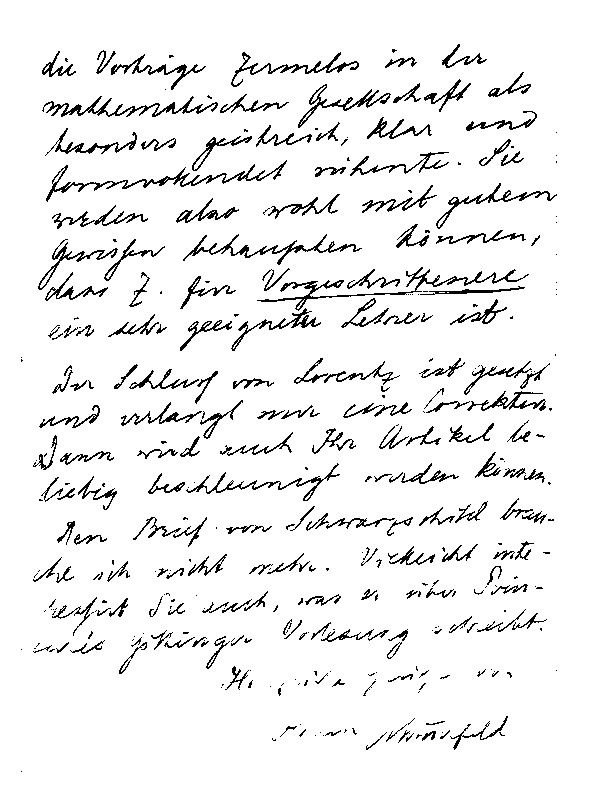 die Vorträge Zermelos in der
mathematischen Gesellschaft als
besonders geistreich, klar und
formvollendet rühmte. Sie
werden also wohl mit gutem
Gewissen behaupten können,
dass Z. für Vorgeschrittenere
ein sehr geeigneter Lehrer ist.
Der Schluss von Lorentz ist gesetzt
und verlangt nur eine Correktur.
Dann wird auch Ihr Artikel be-
liebig beschleunigt werden können.
Den Brief von Schwarzschild brau-
che ich nicht mehr. Vielleicht inte-
ressirt Sie auch, was er über Poin-
carés Vorlesung schreibt.